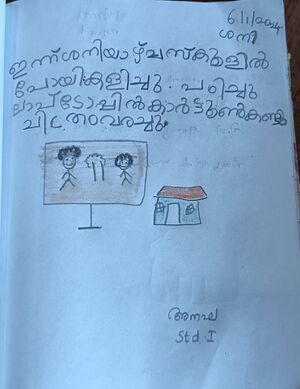 6/1/2024
ശനി
ഇന്ന് ശനിയാഴ്ച സ്കൂളിൽ
പോയികളിച്ചു. പഠിച്ചു
ലാപ്ടോപ്പിൽ കാർട്ടൂൺ കണ്ടു
ചിത്രം വരച്ചു.
അനഘ
Std I